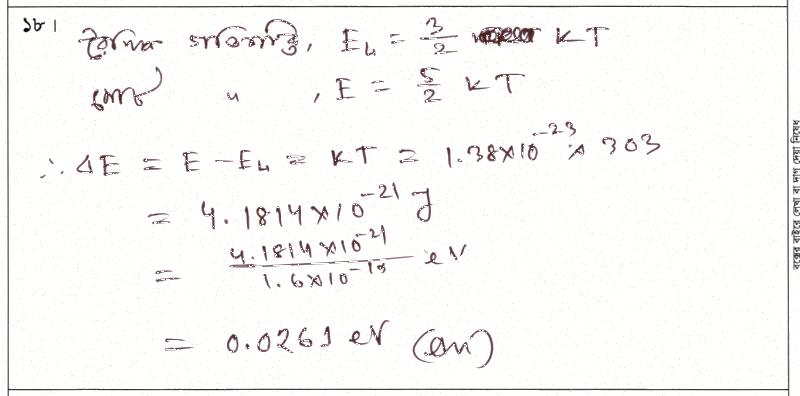 ১৮। রৈখিক গতিশক্তি, E_L = 3/2 KT
মোট " , E = 5/2 KT
∴ ΔE = E - E_L = KT = 1.38×10^-23 × 303
= 4.1814×10^-21 J
= 4.1814×10^-21 / 1.6×10^-19 eV
= 0.0261 eV (Ans)
বক্সের বাইরে লেখা বা দাগ দেয়া নিষেধ